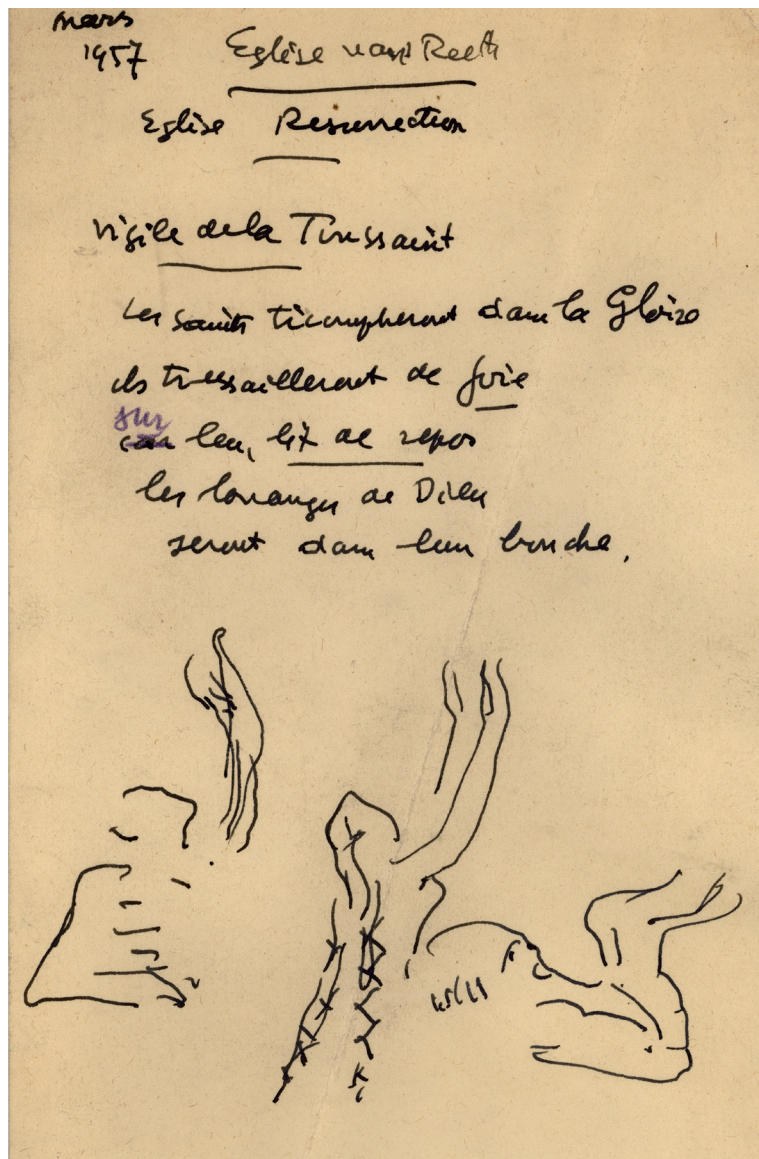 mars
1957
Eglise van Reeth
Eglise Resurrection
Vigile de la Toussaint
Les saints triompheront dans la Gloire
ils tressailleront de joie
sur leur lit de repos
les louanges de Dieu
seront dans leur bouche.